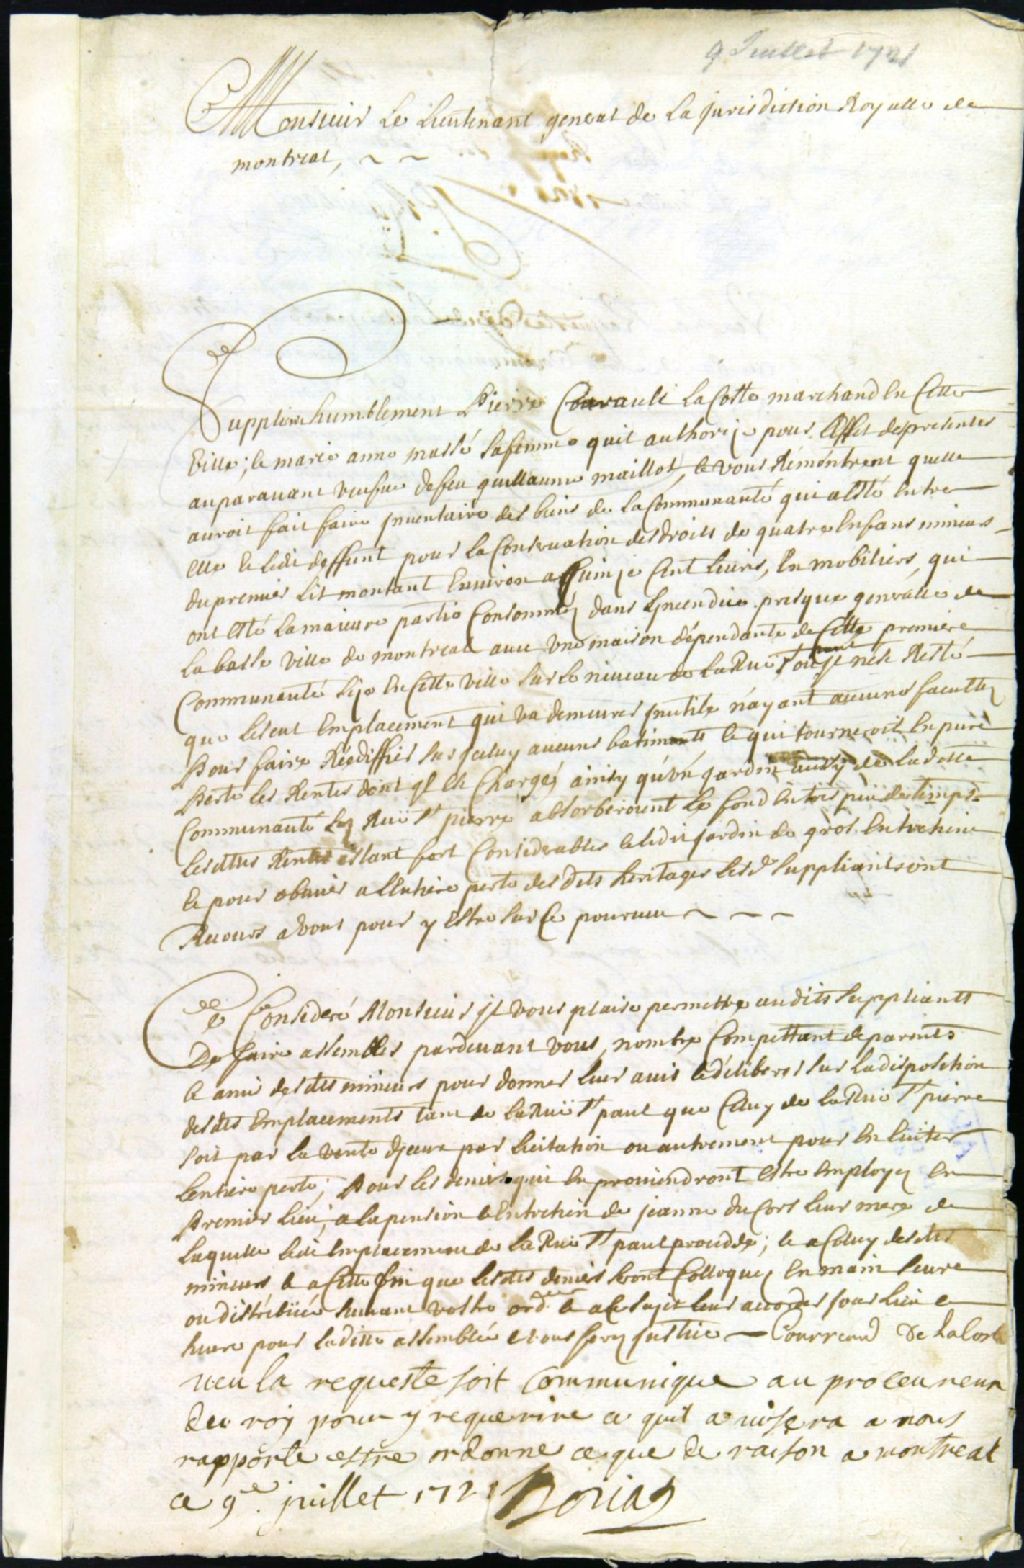 9 Juillet 1721
Monsieur Le Lieutenant general de La jurisdiction Royalle de
montreal, ~ ~
Supplient humblement Pierre Courault La Coste marchand En Cette
Ville; & marie anne massé sa femme quil authorize pour Leffet des presentes
auparauant veufue de feu guillaume maillot, & vous Remontrent quelle
auroit fait faire Jnuentaire des biens de la Communauté qui a Esté Entre
Elle & ledit deffunt pour la Conseruation des droits de quatre Enfans mineurs
du premier Lit montant Enuiron a Quinze Cent liures, En mobiliers, qui
ont esté la maieure partie Consommez dans Lincendie presque generalle de
la basse ville de montreal auec une maison dépendante de Cette premiere
Communauté size En Cette ville sur le niueau de la Rue St paul ou Jl nest Resté
que leseul Emplacement qui va demeurer Jnutile n'ayant aucune faculté
pour faire Réédiffier sur iceluy aucuns batiments & qui tourneroit En pure
perte les Rentes dont Jl Est Chargé, ainsy qu'un jardin de ladite
Communauté Rue St pierre absorberoient le fond En tres peu de temps
lesdittes Rentes estant fort Considerables & ledit jardin de gros Entretient
& pour obuier a Lentiere perte des dits heritages lesd. Suppliants ont
Recours a vous pour y estre sur Ce pourueu ~ ~ ~
Ce Consideré Monsieur Jl vous plaise permettre audits Suppliants
De faire assembler pardeuant vous, nombre Compettant de parents
& amis desdits mineurs pour donner leur auis & délibérer sur la disposition
desdits Emplacements tant de la Rue St paul que Celuy de la Rue St pierre
soit par la vente dJceux par licitation ou autrement pour En Euiter
Lentiere perte; Pour les deniers qui En prouiendront estre Employez En
Premier lieu; a la pension & Entretien de jeanne du Cors leur mere de
laquelle ledit Emplacement de la Rue St paul procedde; & a Celuy desdits
mineurs & a Cette fin que lesdits deniers seront Colloquez En main seure
ou distribuée suiuant vostre ordce & a Ce sujet leur accorder jour lieu &
heure pour laditte assemblée & vous ferez justice ~ Courreaud De La Coste
veu la requeste soit Communique au procureur
du roy pour y requerire ce quil avisera a nous
rapporté estre ordonne ce que de raison a montreal
ce 9e. juillet 1721 Boüat